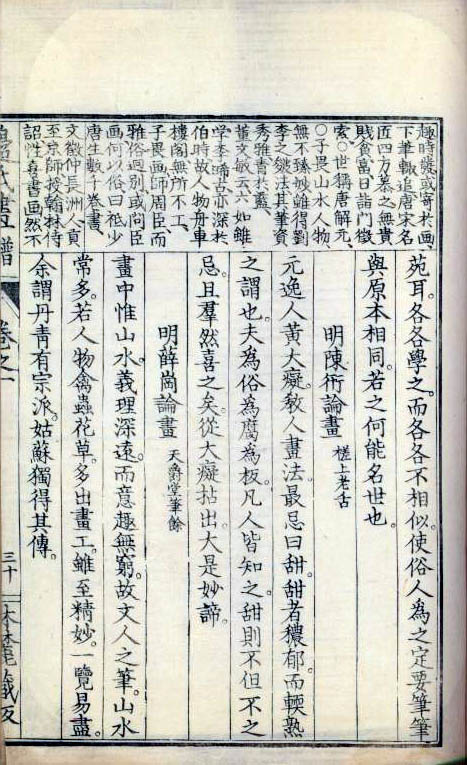 趣時發或寄於画
下筆輙追唐宋名
匠四方慕之無貴
賤貧富日詣門徵
索○世稱唐解元、
○子畏山水人物、
無不臻妙雖得劉
李之皴法其筆資
秀雅青於藍、
董文敏云六如雖
學李晞古亦深於
伯時故人物舟車
樓閣無所不工、
子畏画師周臣而
雅俗迥别或問臣
画何以俗曰祗少
唐生數千卷書、
文徵仲長洲人貢
至京師授翰林待
詔性喜書画然不
苑耳。各各學之。而各各不相似。使俗人為之。定要筆筆
與原本相同。若之何能名世也。
明陳衎論畫 槎上老舌
元逸人黄大癡教人畫法。最忌曰甜。甜者穠郁而輭熟
之謂也。夫為俗為腐為板。凡人皆知之。甜則不但不之
忌。且羣然喜之矣。從大癡拈出大是妙諦。
明薛崗論畫 天爵堂筆餘
畫中惟山水。義理深遠。而意趣無窮。故文人之筆。山水
常多。若人物禽蟲花草。多出畫工。雖至精妙。一覽易盡。
余謂丹青有宗派。姑蘇獨得其傳。
卷之一
三十